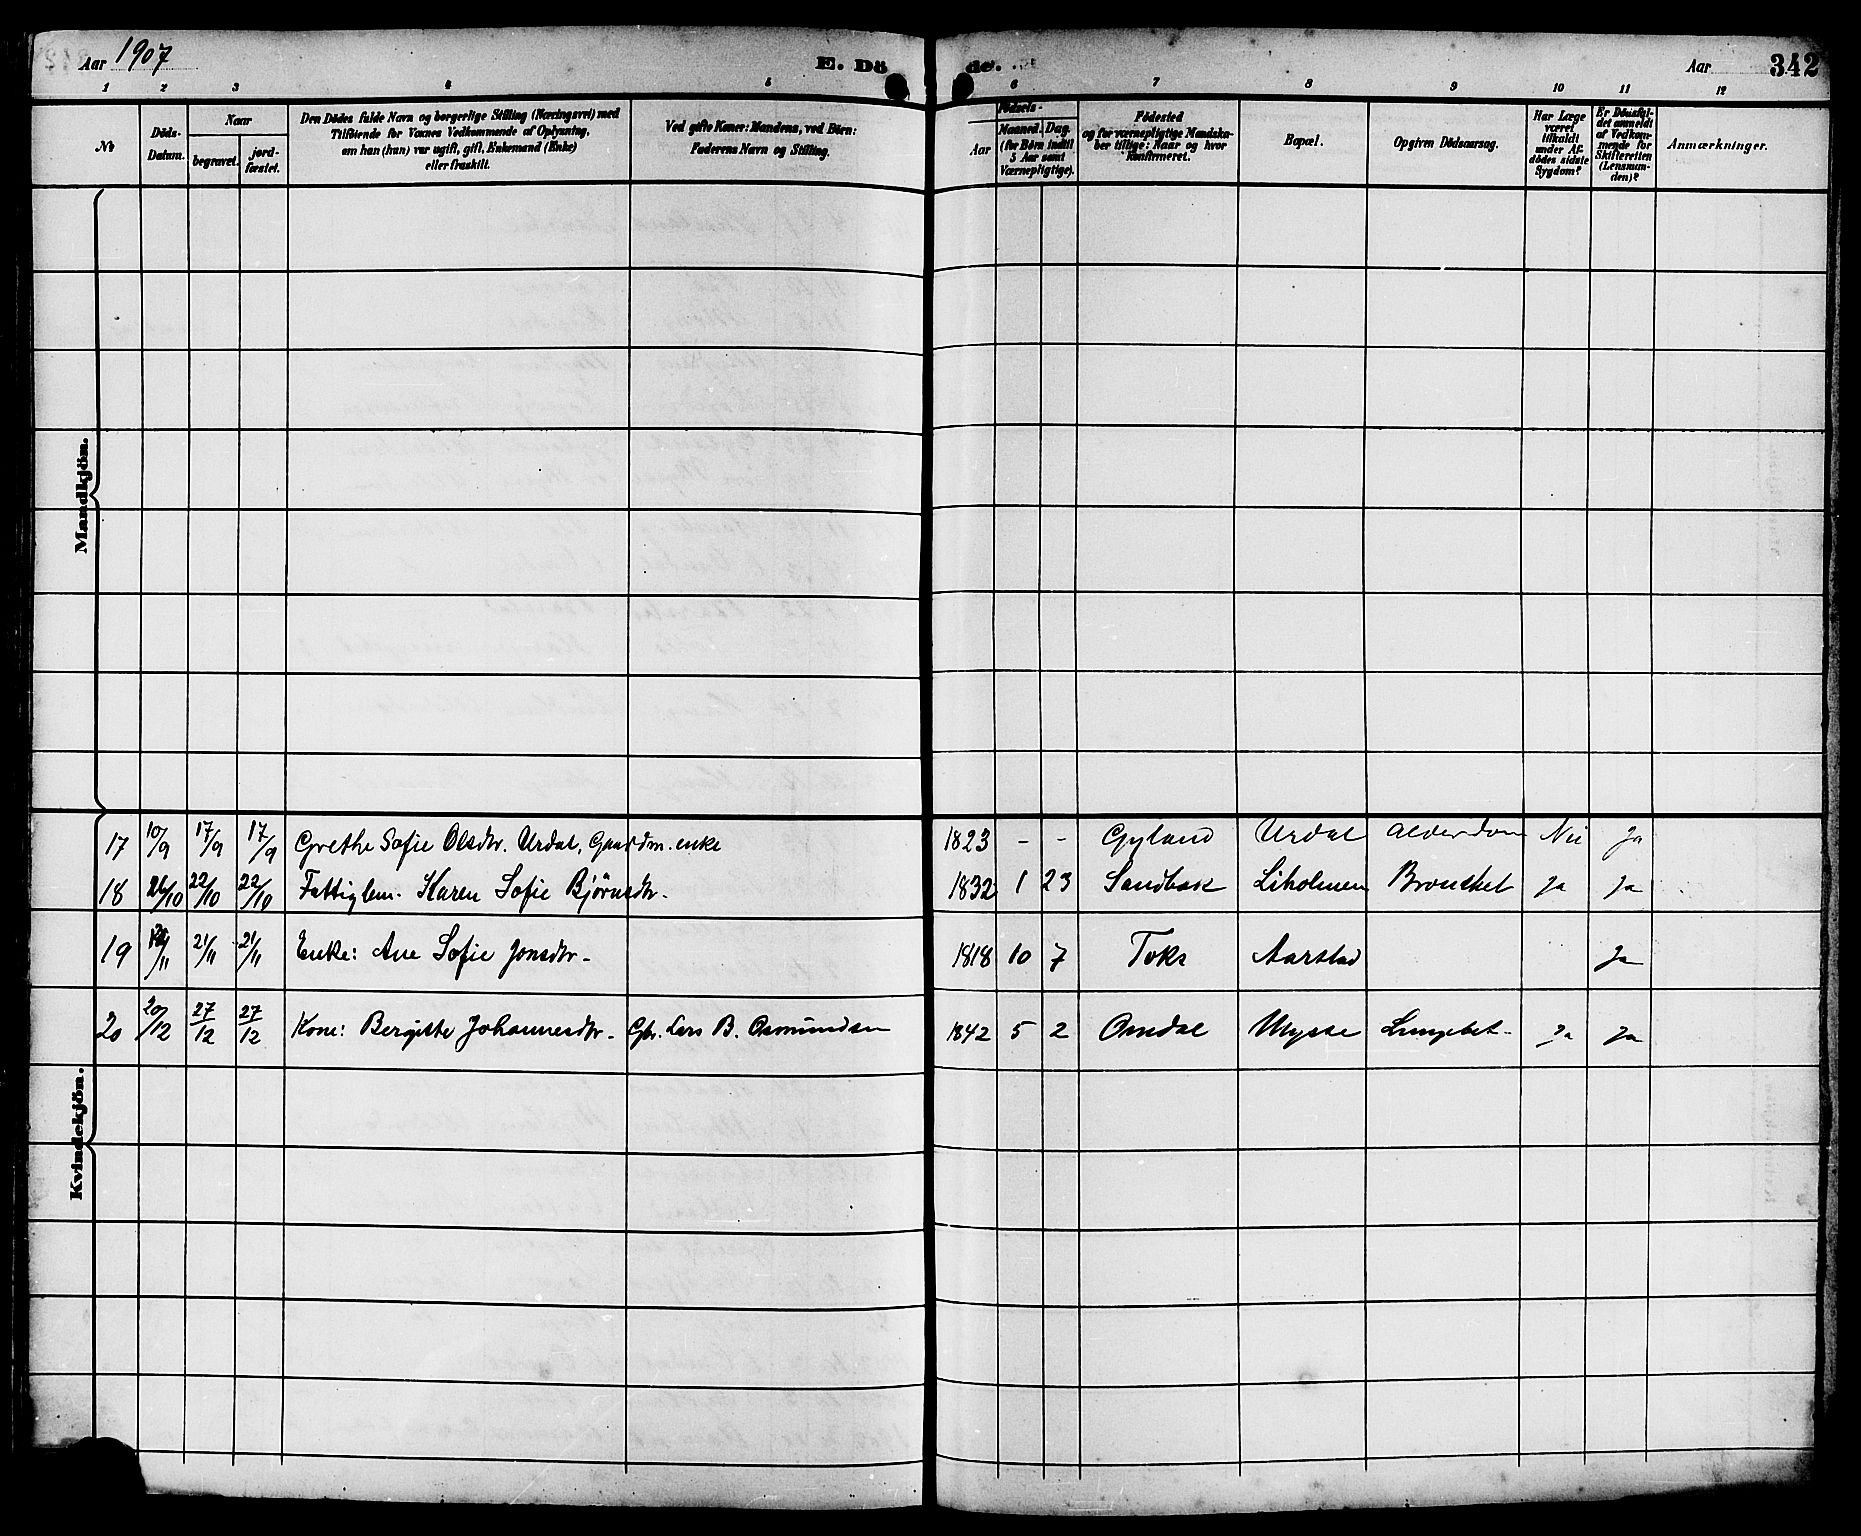 Aar 1907 E. Dö de. Aar 342
1 2 3 4 5 6 7 8 9 10 11 12
No
Döds-Datum.
Naar
begravet.
jord-fæstet.
Den Dödes fulde Navn og borgerlige Stilling (Næringsvei) med
Tilföiende for Voxnes Vedkommende af Oplysning,
om han (hun) var ugift, gift, Enkemand (Enke)
eller fraskilt.
Ved gifte Koner: Mandens, ved Börn:
Faderens Navn og Stilling.
Födsels-
Aar
Maaned. Dag.
(for Börn indtil
5 Aar samt
Værnepligtige).
Födested
og for værnepligtige Mandska-
ber tillige: Naar og hvor
konfirmeret.
Bopæl.
Opgiven Dödsaarsag.
Har Læge
været
tilkaldt
under Af-
dödes sidste
Sygdom?
Er Dödsfal-
det anmeldt
af Vedkom-
mende for
Skifteretten
(Lensman-
den)?
Anmærkninger.
Mandkjön.
17 10/9 17/9 17/9 Grethe Sofie Olsdtr. Urdal, Gaardm. enke 1823 - - Gyland Urdal Alderdom Nei Ja
18 /10 22/10 22/10 Fattiglem. Karen Sofie Bjørnsdtr. 1832 1 23 Sandbak Liholmen Bronchet Ja Ja
19 /11 21/11 21/11 Enke: Ane Sofie Jonsdtr. 1818 10 7 Toks Aarstad Ja
20 20/12 27/12 27/12 Kone: Bergitte Johannesdtr. Gbr. Lars B. Osmundsen 1842 5 2 Omdal Mysse Lungebet. Ja Ja
Kvindekjön.